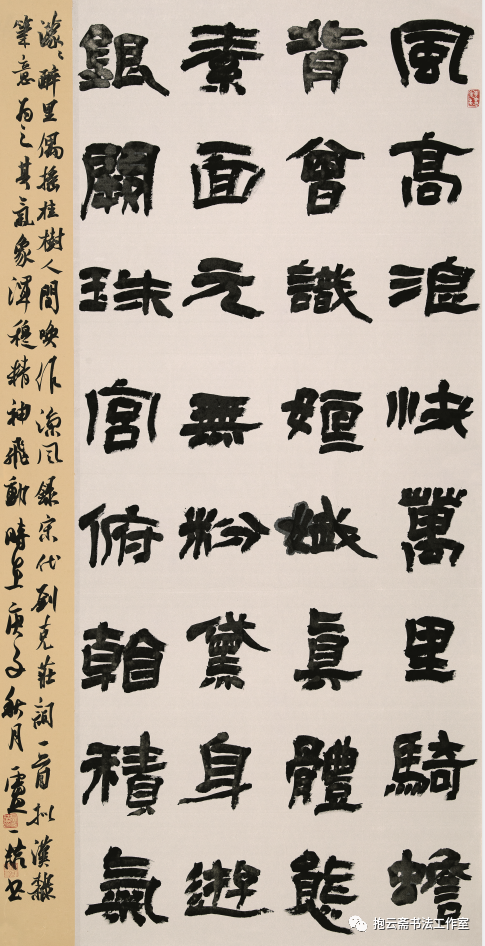 風高浪快萬里騎蟾
背曾識姮娥真體態
素面元無粉黛身遊
銀闕珠宮俯看積氣
濛〻醉里偶搖桂樹人間喚作涼風錄宋代劉克莊詞一首擬漢隸
筆意為之其氣象渾穆精神飛動時在庚子秋月盧一書
抱云斋书法工作室